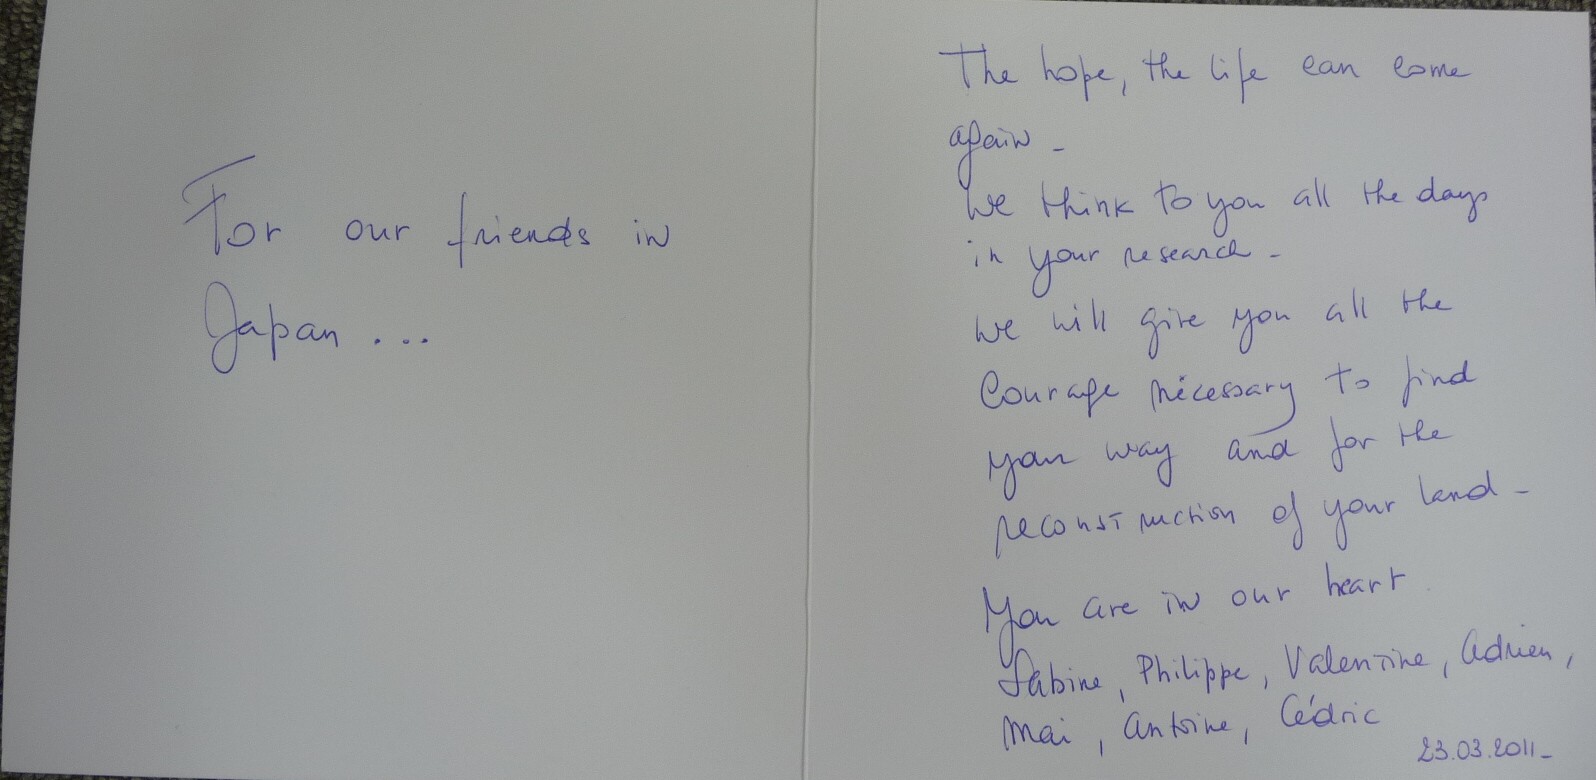 For our friends in
Japan ...
The hope, the life can come
again -
We think to you all the days
in your research -
We will give you all the
Courage nécessary to find
your way and for the
reconstruction of your land -
You are in our heart.
Sabine, Philippe, Valentine, Adrien,
Mai, Antoine, Cédric
23.03.2011-